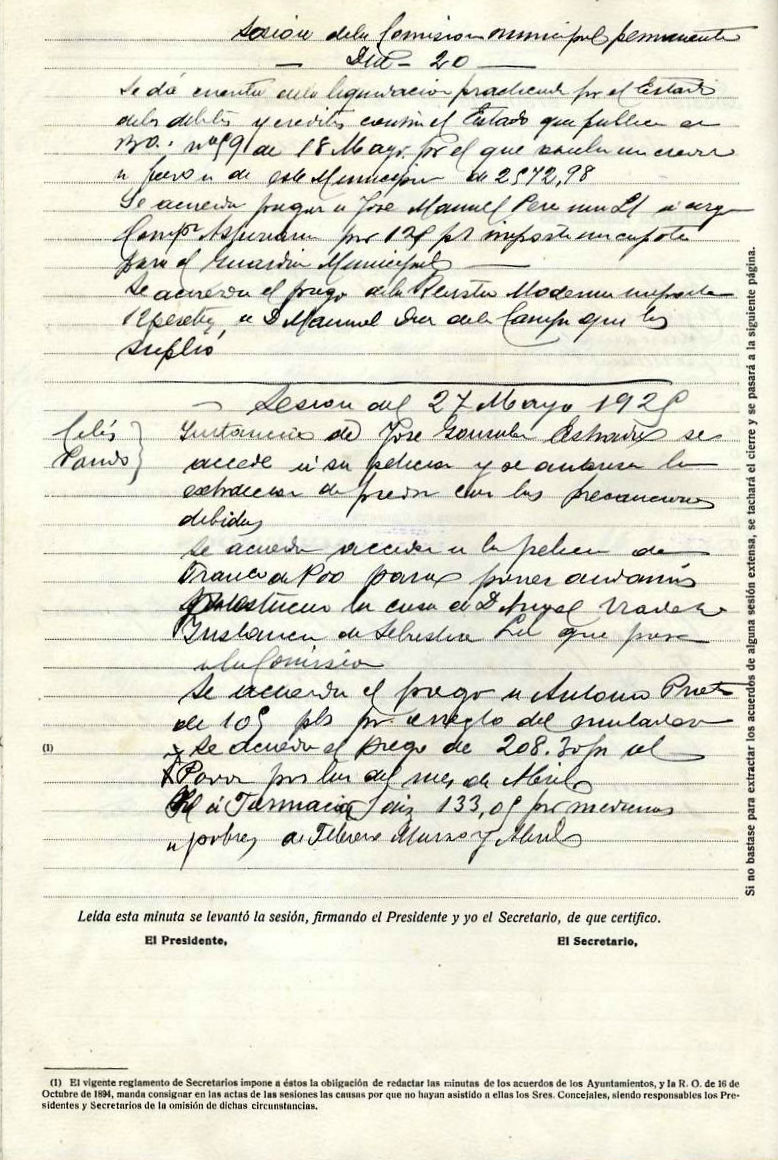 Sesión de la Comision municipal permanente
— Dia - 20 —
Se dá cuenta de la liquidacion practicada por el Estado
de los debitos y creditos contra el Estado que publica el
B.O. nº 59 de 18 Mayo por el que resulta un
a favor de este Municipio de 2572,98
Se acuerda pagar a Jose Manuel
por 125 pts importe un capote
para el Guardia Municipal —
Se acuerda el pago de la Revista Moderna importe
12 pesetas a D Manuel de la Campa que las
suplió
— Sesion del 27 Mayo 1925
Celís
Pando
Instancia de Jose Gonzalez Estrada se
accede a su peticion y se autoriza la
extraccion de piedra con las precauciones
debidas
Se acuerda acceder a la peticion de
Franco de Poo para poner andamios
la casa de D Angel
Instancia de Sebastian Gil que pase
a la Comission
Se acuerda el pago a Antonio Prieto
de 105 pts por arreglo del matadero
Se acuerda el pago de 208.30 pts al
por luz del mes de Abril
Id á Farmacia 133,05 por medicinas
a pobres de Febrero Marzo y Abril
(1)
Leída esta minuta se levantó la sesión, firmando el Presidente y yo el Secretario, de que certifico.
El Presidente, El Secretario,
(1) El vigente reglamento de Secretarios impone a éstos la obligación de redactar las minutas de los acuerdos de los Ayuntamientos, y la R. O. de 16 de
Octubre de 1894, manda consignar en las actas de las sesiones las causas por que no hayan asistido a ellas los Sres. Concejales, siendo responsables los Pre-
sidentes y Secretarios de la omisión de dichas circunstancias.
Si no bastase para extractar los acuerdos de alguna sesión extensa, se tachará el cierre y se pasará a la siguiente página.